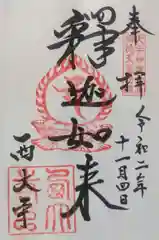 奉拝
令和二年
十一月四日
釋迦如来
西大寺